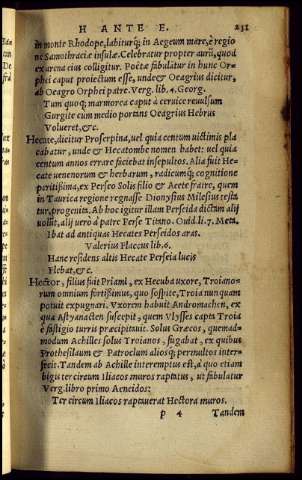 H ANTE E. 231
in monte Rhodope, labiturq; in Aegeum mare, è regio
ne Samothraciæ insulæ. Celebratur propter aurū, quod
ex arena eius colligitur. Poëtæ fabulatur in hunc Or-
phei caput proiectum esse, unde & Oeagrius dicitur,
ab Oeagro Orphei patre. Verg. lib. 4. Georg.
Tum quoq; marmorea caput à ceruice reuulsum
Gurgite cum medio portans Oeagrius Hebrus
Volueret, &c.
Hecate, dicitur Proserpina, uel quia centum uictimis pla
cabatur, unde & Hecatombe nomen habet: uel quia
centum annos errare faciebat insepultos. Alia fuit He
cate uenenorum & herbarum, radicumq; cognitione
peritissima, ex Perseo Solis filio & Aeetæ fratre, quem
in Taurica regione regnasse Dionysius Milesius testa
tur, progenita. Ab hoc igitur illam Perseida dictum alij
uolūt, alij uerò à patre Perse Titano. Ouid. li. 7. Meta.
Ibat ad antiquas Hecates Perseidos aras.
Valerius Flaccus lib. 6.
Hanc residens altis Hecate Perseia lucis
Flebat, &c.
Hector, filius fuit Priami, ex Hecuba uxore, Troiano-
rum omnium fortissimus, quo sospite, Troia nunquam
potuit expugnari. Vxorem habuit Andromachen, ex
qua Astyanacten suscepit, quem Vlysses capta Troia
è fastigio turris præcipitauit. Solus Græcos, quemad-
modum Achilles solus Troianos, fugabat, ex quibus
Prothesilaum & Patroclum aliosq; permultos inter-
fecit. Tandem ab Achille interemptus est, à quo etiam
bigis ter circum Iliacos muros raptatus, ut fabulatur
Verg. libro primo Aeneidos:
Ter circum Iliacos raptauerat Hectora muros.
p 4 Tandem